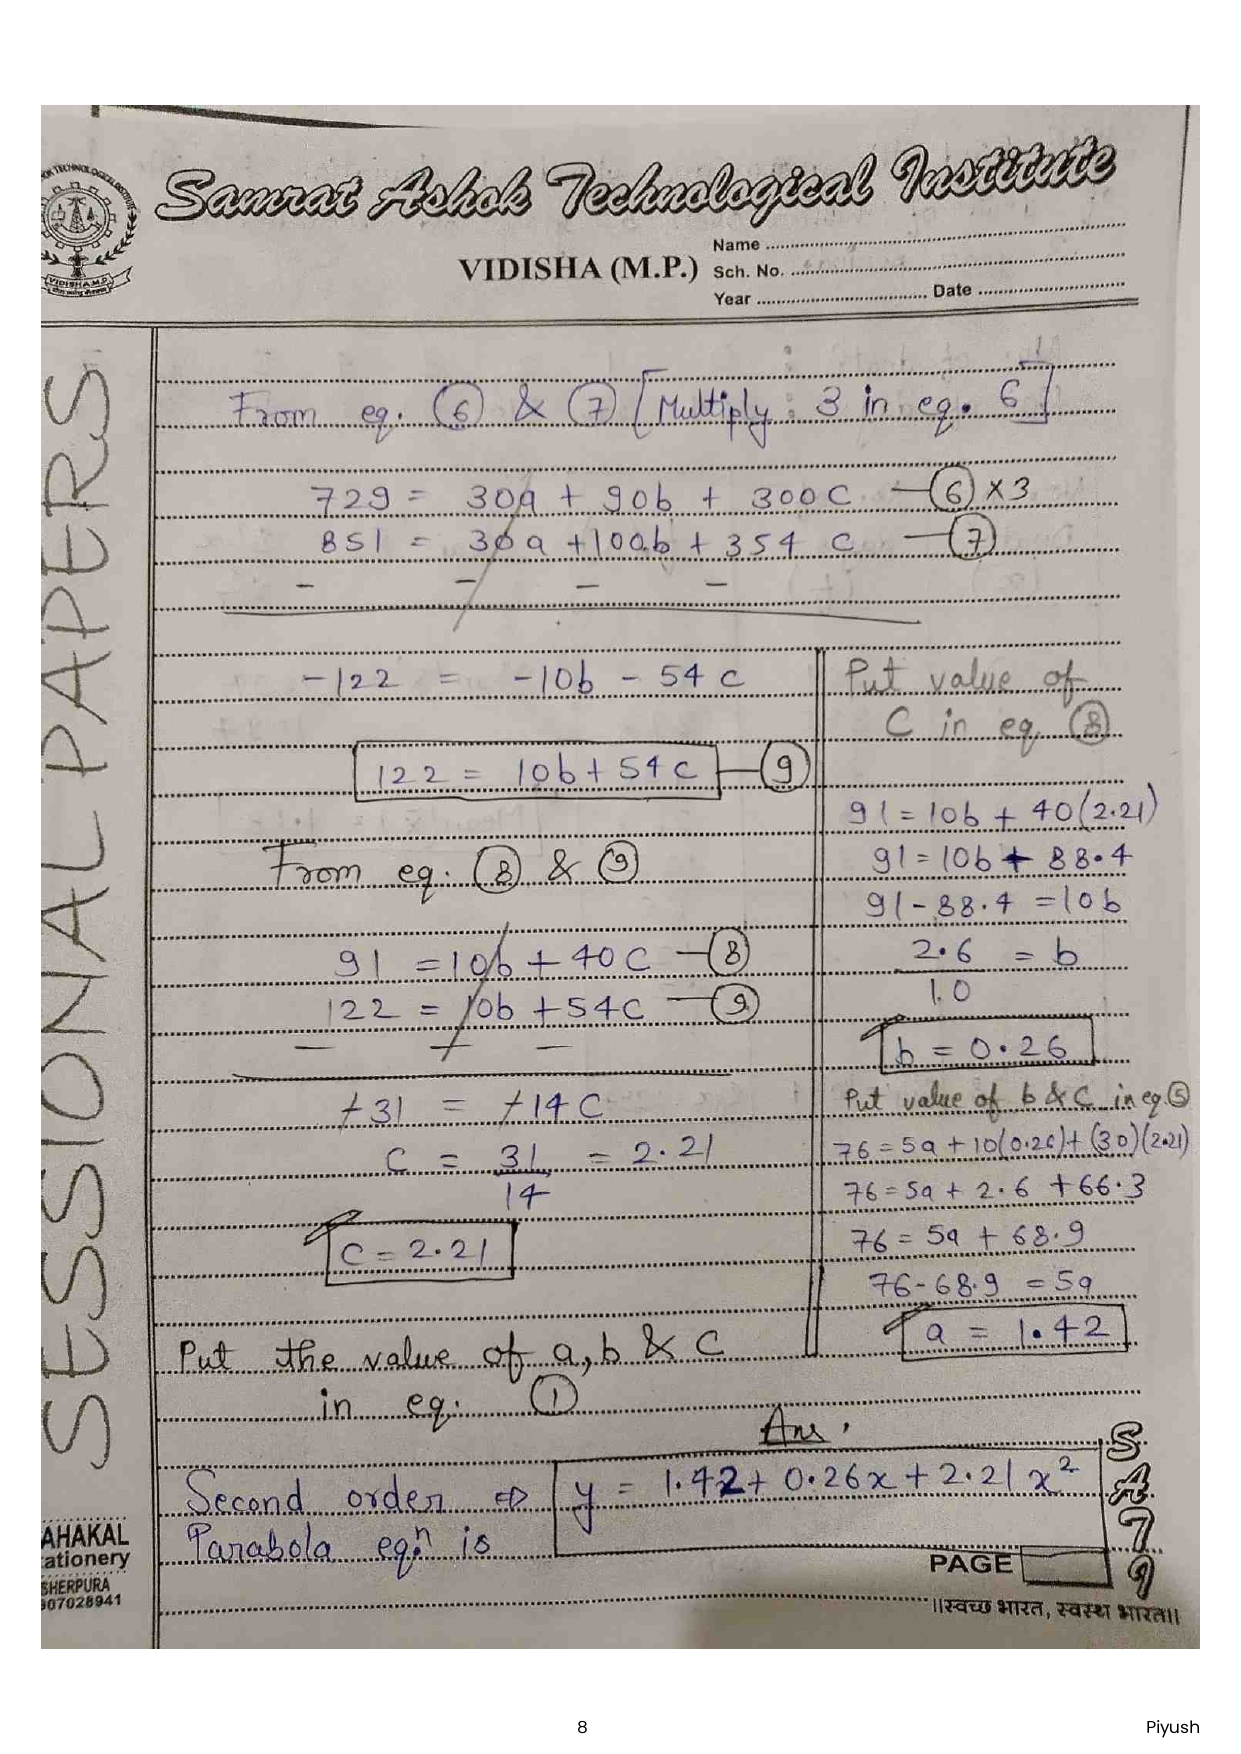 Samrat Ashok Technological Institute
VIDISHA (M.P.)
Name
Sch. No.
Year
Date
SESSIONAL PAPERS
From eq. (6) & (7) [Multiply : 3 in eq. 6]
729 = 30a + 90b + 300c — (6) × 3
851 = 30a + 100b + 354 c — (7)
− − − −
-122 = -10b - 54 c
122 = 10b + 54 c — (9)
From eq. (8) & (9)
91 = 10b + 40c — (8)
122 = 10b + 54c — (9)
− − −
+31 = +14c
c = 31/14 = 2.21
c = 2.21
Put value of
C in eq. (8)
91 = 10b + 40(2.21)
91 = 10b + 88.4
91 - 88.4 = 10b
2.6/10 = b
b = 0.26
Put value of b & c in eq. (5)
76 = 5a + 10(0.26) + (30)(2.21)
76 = 5a + 2.6 + 66.3
76 = 5a + 68.9
76 - 68.9 = 5a
a = 1.42
Put the value of a, b & c
in eq. (1)
Ans.
Second order ⇒ y = 1.42 + 0.26x + 2.21x²
Parabola eqⁿ is
SA79
AHAKAL
ationery
SHERPURA
907028941
PAGE
॥स्वच्छ भारत, स्वस्थ भारत॥
8
Piyush